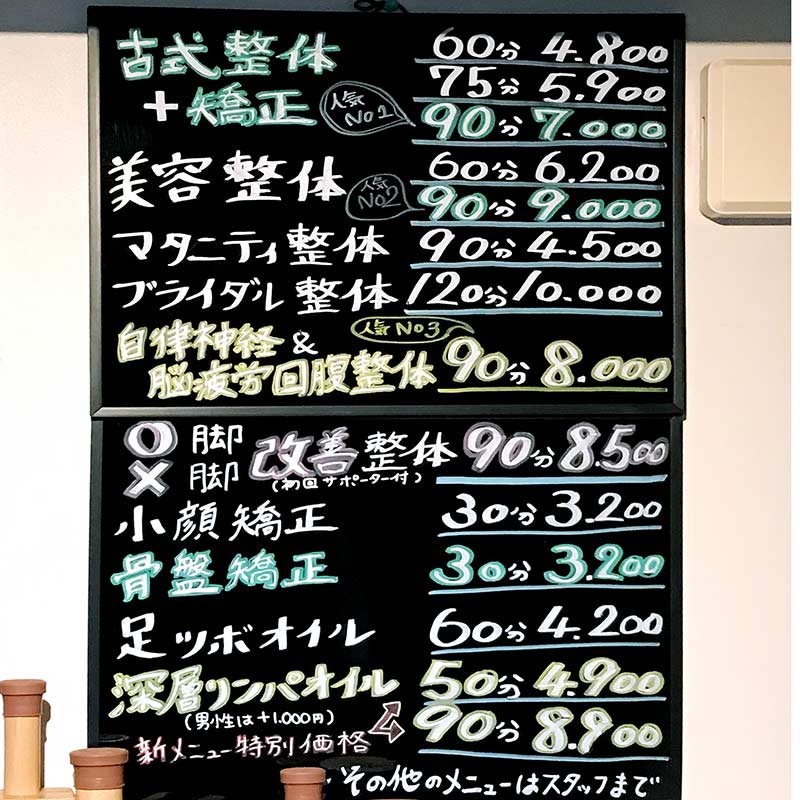 古式整体 60分 4.800
75分 5.900
+矯正 人気No1 90分 7.000
美容整体 60分 6.200
人気No2 90分 9.000
マタニティ整体 90分 4.500
ブライダル整体 120分 10.000
人気No3
自律神経&
脳疲労回腹整体 90分 8.000
O脚
X脚 改善整体 90分 8.500
(初回サポーター付)
小顔矯正 30分 3.200
骨盤矯正 30分 3.200
足ツボオイル 60分 4.200
深層リンパオイル 50分 4.900
(男性は+1.000円) 90分 8.900
新メニュー特別価格
その他のメニューはスタッフまで